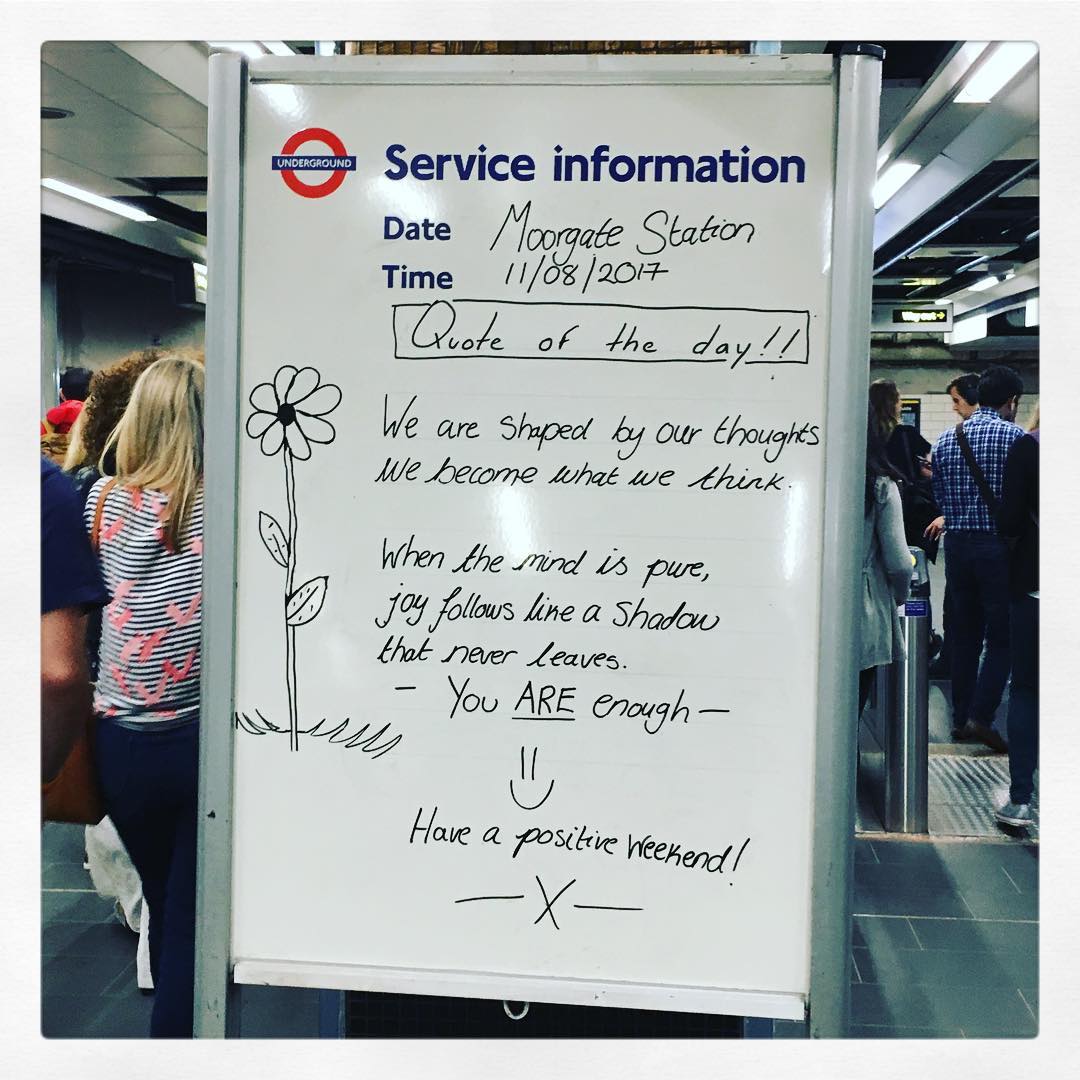 UNDERGROUND
Service information
Date Moorgate Station
Time 11/08/2017
Quote of the day!!
We are shaped by our thoughts
We become what we think.
When the mind is pure,
joy follows like a shadow
that never leaves.
- You ARE enough -
Have a positive weekend!
— X —
Way out →